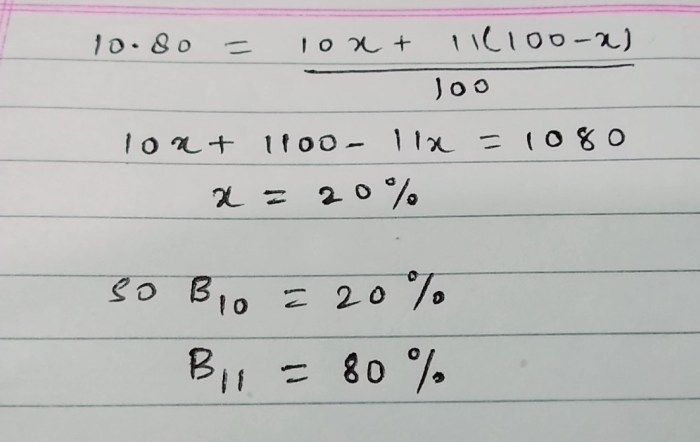 10.80 = 10x + 11(100-x)
100
10x + 1100 - 11x = 1080
x = 20%
so B10 = 20%
B11 = 80%